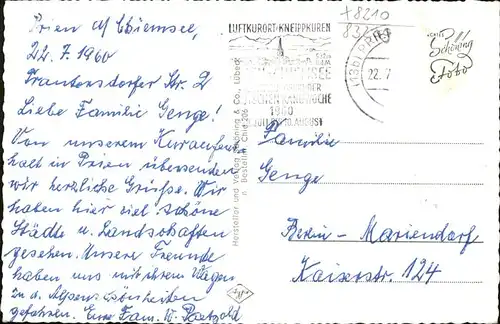 Prien a/ Chiemsee,
22.7.1960
Trautersdorfer Str. 2
Liebe Familie Genge!
Von unserem Kuraufent
halt in Prien übersenden
wir herzliche Grüße. Wir
haben hier viel schöne
Städte u. Landschaften
gesehen. Unsere Freunde
haben uns mit ihrem Wagen
zu d. Alpenschönheiten
gefahren. Eure Fam. W. Paetzold
LUFTKURORT · KNEIPPKUREN
1960
JULI 10. AUGUST
(13b) PRIEN
22.7
+8210
Echtes
Schöning
Foto
Hersteller und Verlag Schöning & Co., Lübeck
n. Bestellnr. Chie 206
Agfa
Familie
Genge
Berlin - Mariendorf
Kaiserstr. 124